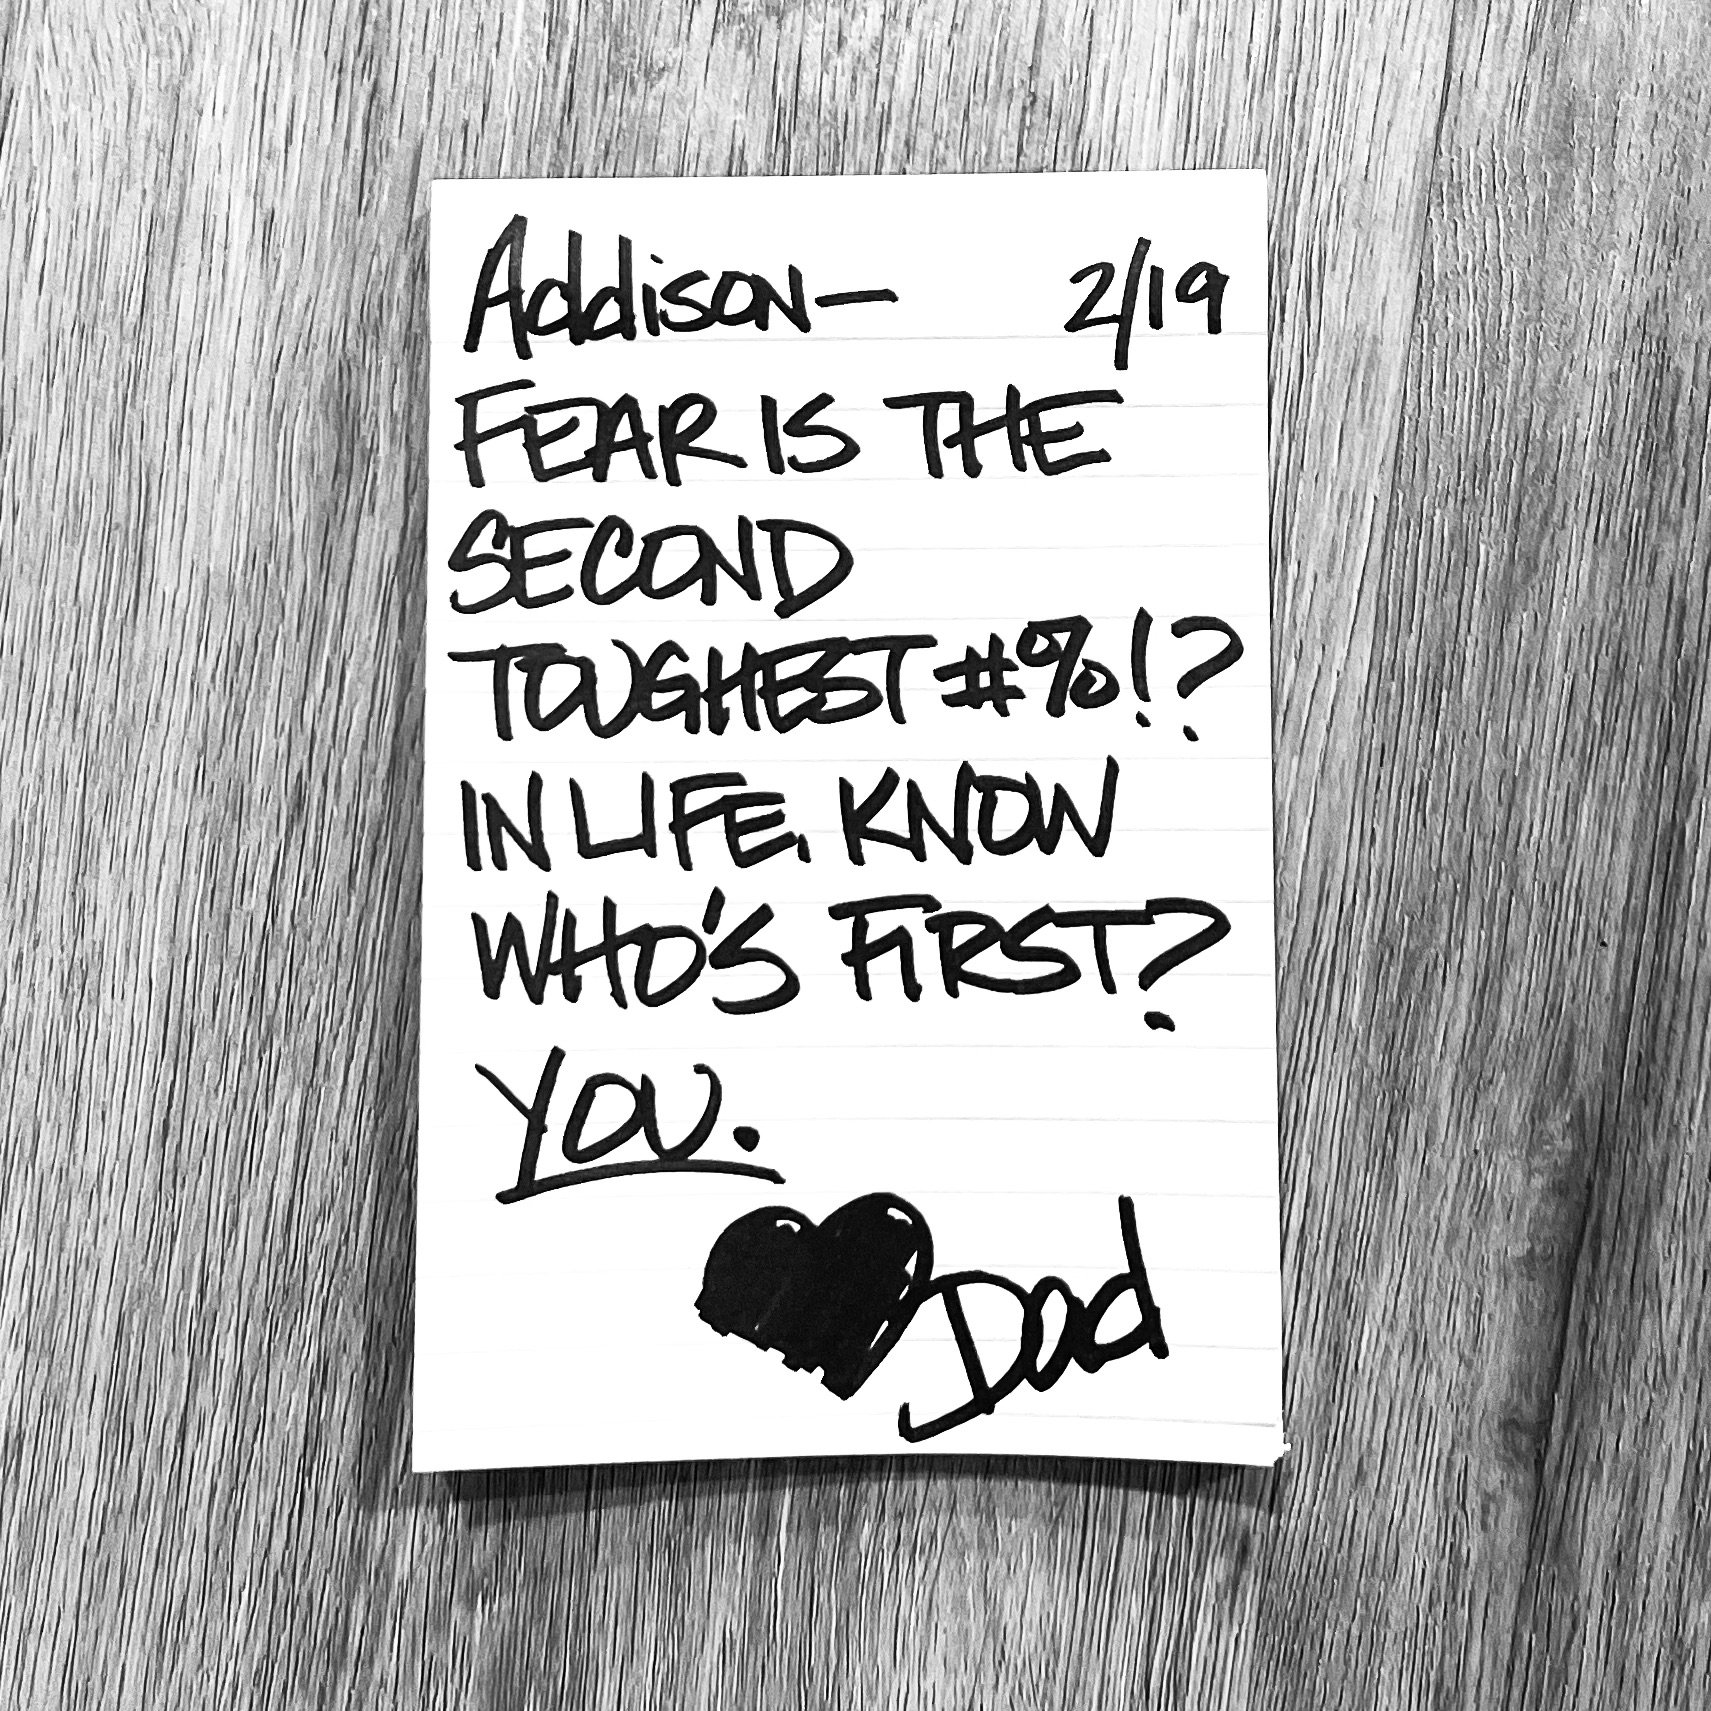 Addison— 2/19
FEAR IS THE
SECOND
TOUGHEST #%!?
IN LIFE. KNOW
WHO'S FIRST?
YOU.
Dad